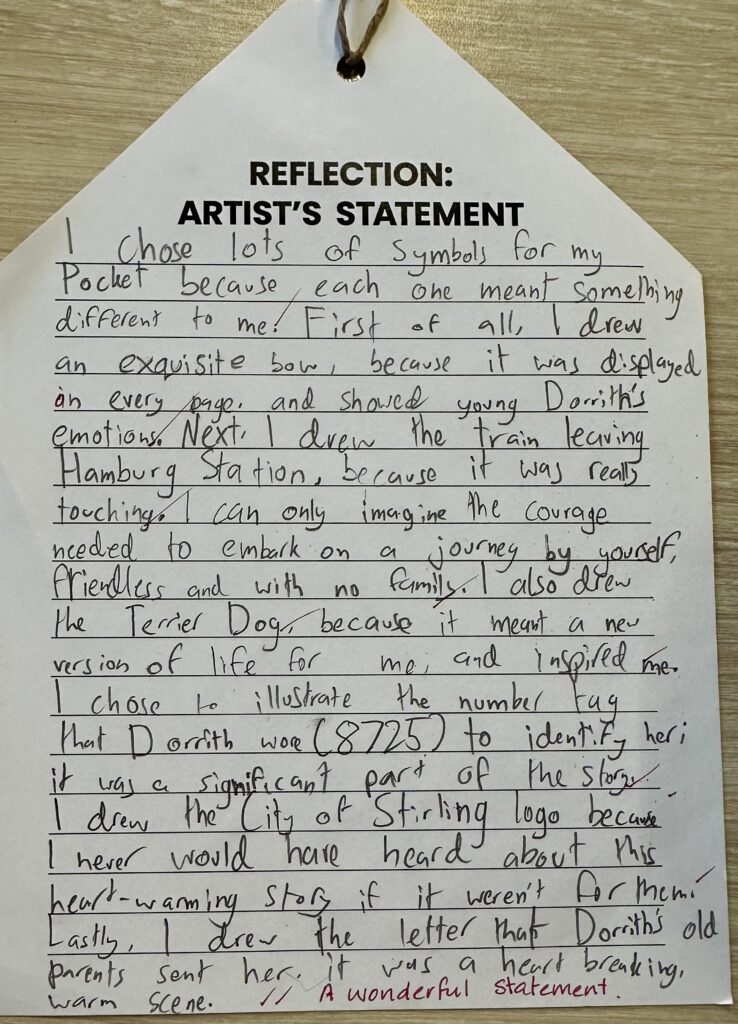 REFLECTION:
ARTIST'S STATEMENT
I chose lots of symbols for my
Pocket because each one meant something
different to me. First of all, I drew
an exquisite bow, because it was displayed
on every page. and showed young Dorrith's
emotions. Next, I drew the train leaving
Hamburg Station, because it was really
touching. I can only imagine the courage
needed to embark on a journey by yourself,
friendless and with no family. I also drew
the Terrier Dog, because it meant a new
version of life for me, and inspired me.
I chose to illustrate the number tag
that Dorrith wore (8725) to identify her;
it was a significant part of the story.
I drew the City of Stirling logo because
I never would have heard about this
heart-warming story if it weren't for them.
Lastly, I drew the letter that Dorrith's old
parents sent her. it was a heart breaking,
warm scene. // A wonderful statement.